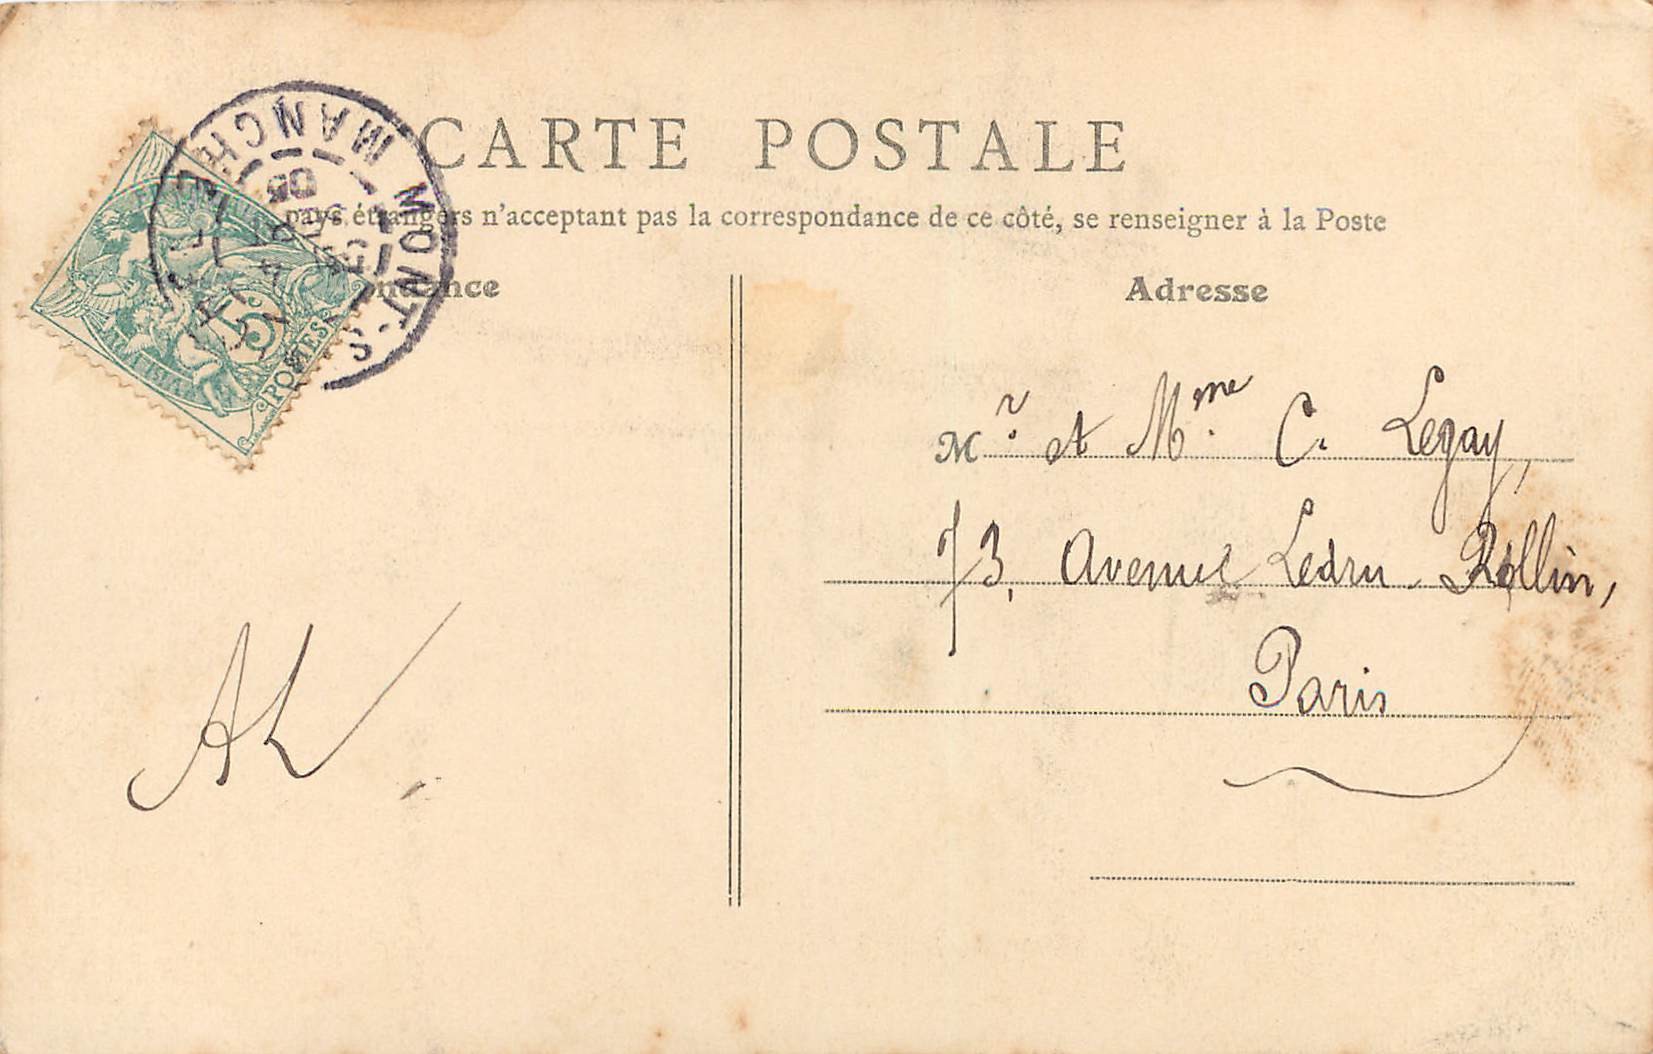 CARTE POSTALE
pays étrangers n'acceptant pas la correspondance de ce côté, se renseigner à la Poste
Adresse
Mr. et Mme. C. Legay,
73, Avenue Ledru-Rollin,
Paris
AL
MONT-S
MANCHE
05
5
POSTES